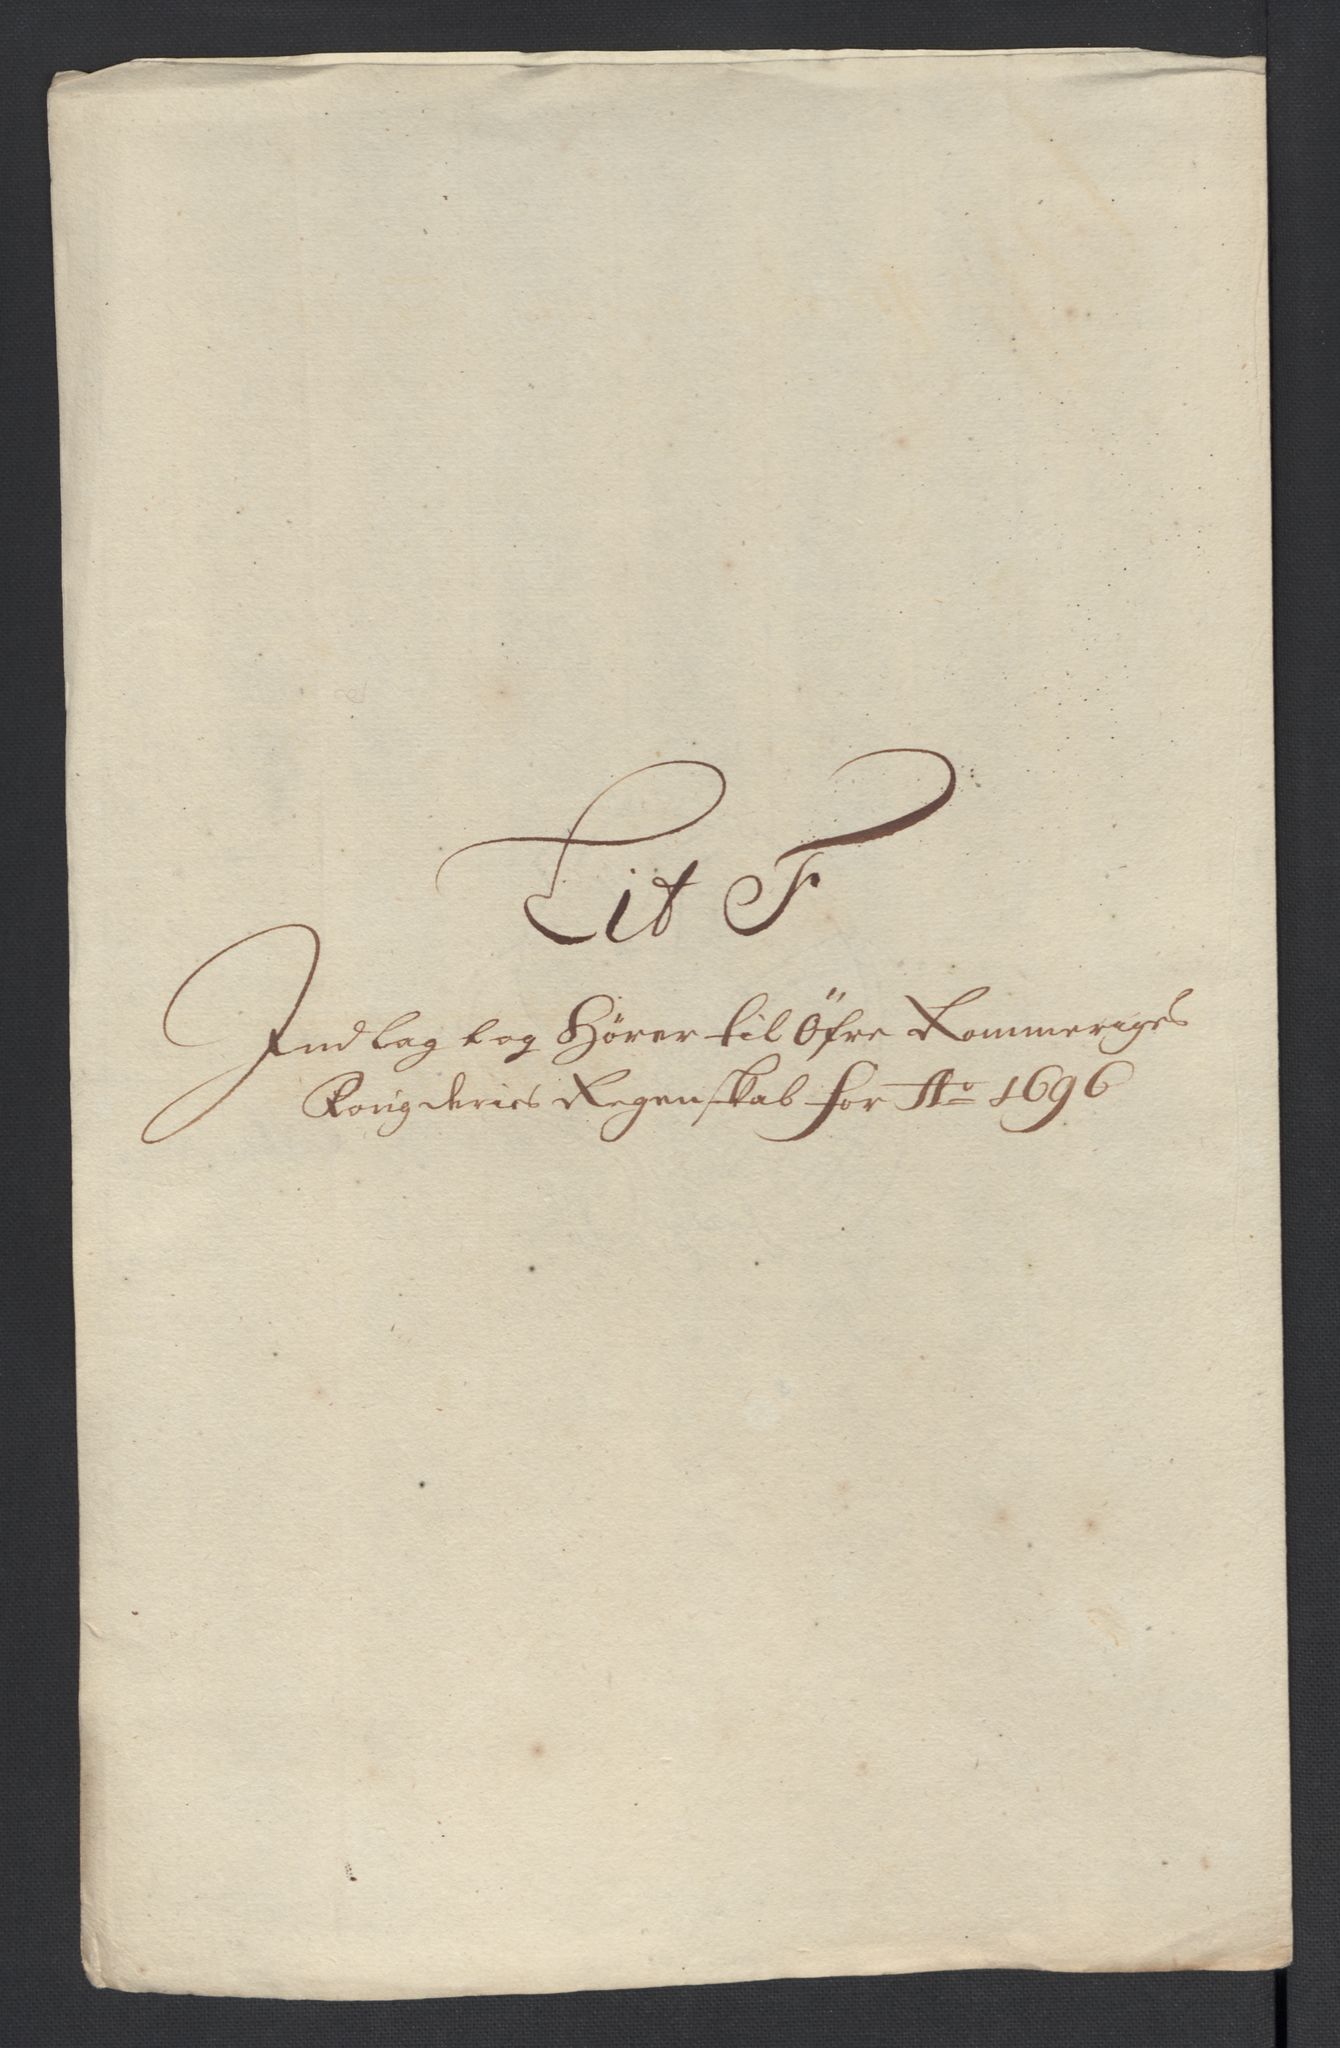 Lit F
Indlagt og Hörer til Öfre Rommeriges
Fougderies Regenskab for Ao 1696